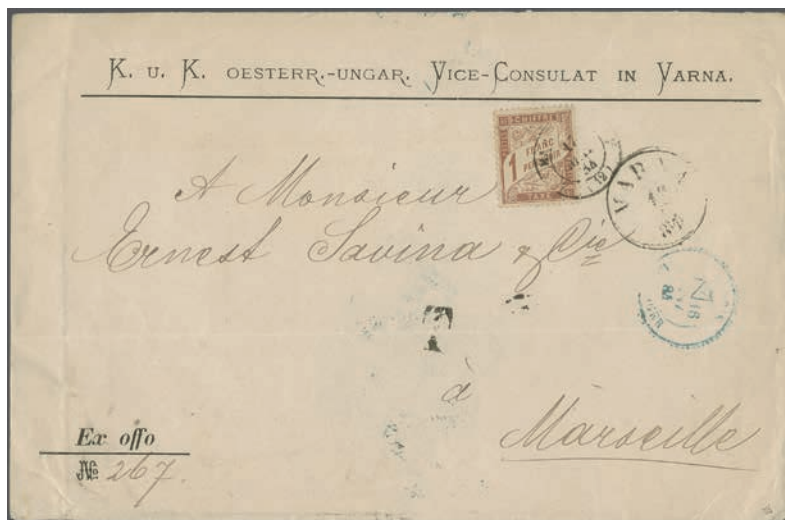 K. u. K. OESTERR.-UNGAR. VICE-CONSULAT IN VARNA.
CHIFFRE
1
FRANC
TAXE
A Monsieur
Ernest Savina & Cie
T
à
Marseille
Ex offo
No 267.